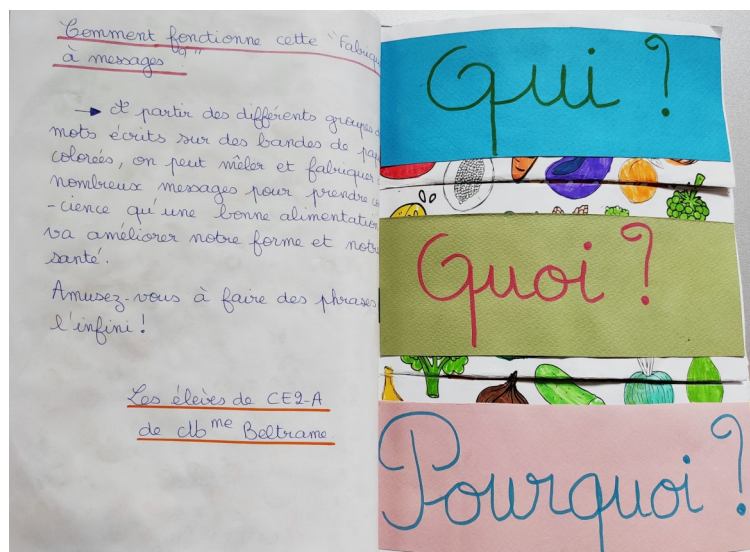 Comment fonctionne cette "Fabrique
à messages ?"
→ A partir des différents groupes
mots écrits sur des bandes de
colorées, on peut mêler et fabriquer
nombreux messages pour prendre
-cience qu'une bonne alimentation
va améliorer notre forme et notre
santé.
Amusez-vous à faire des phrases
l'infini !
Les élèves de CE2-A
de Mme Beltrame.
Qui ?
Quoi ?
Pourquoi ?